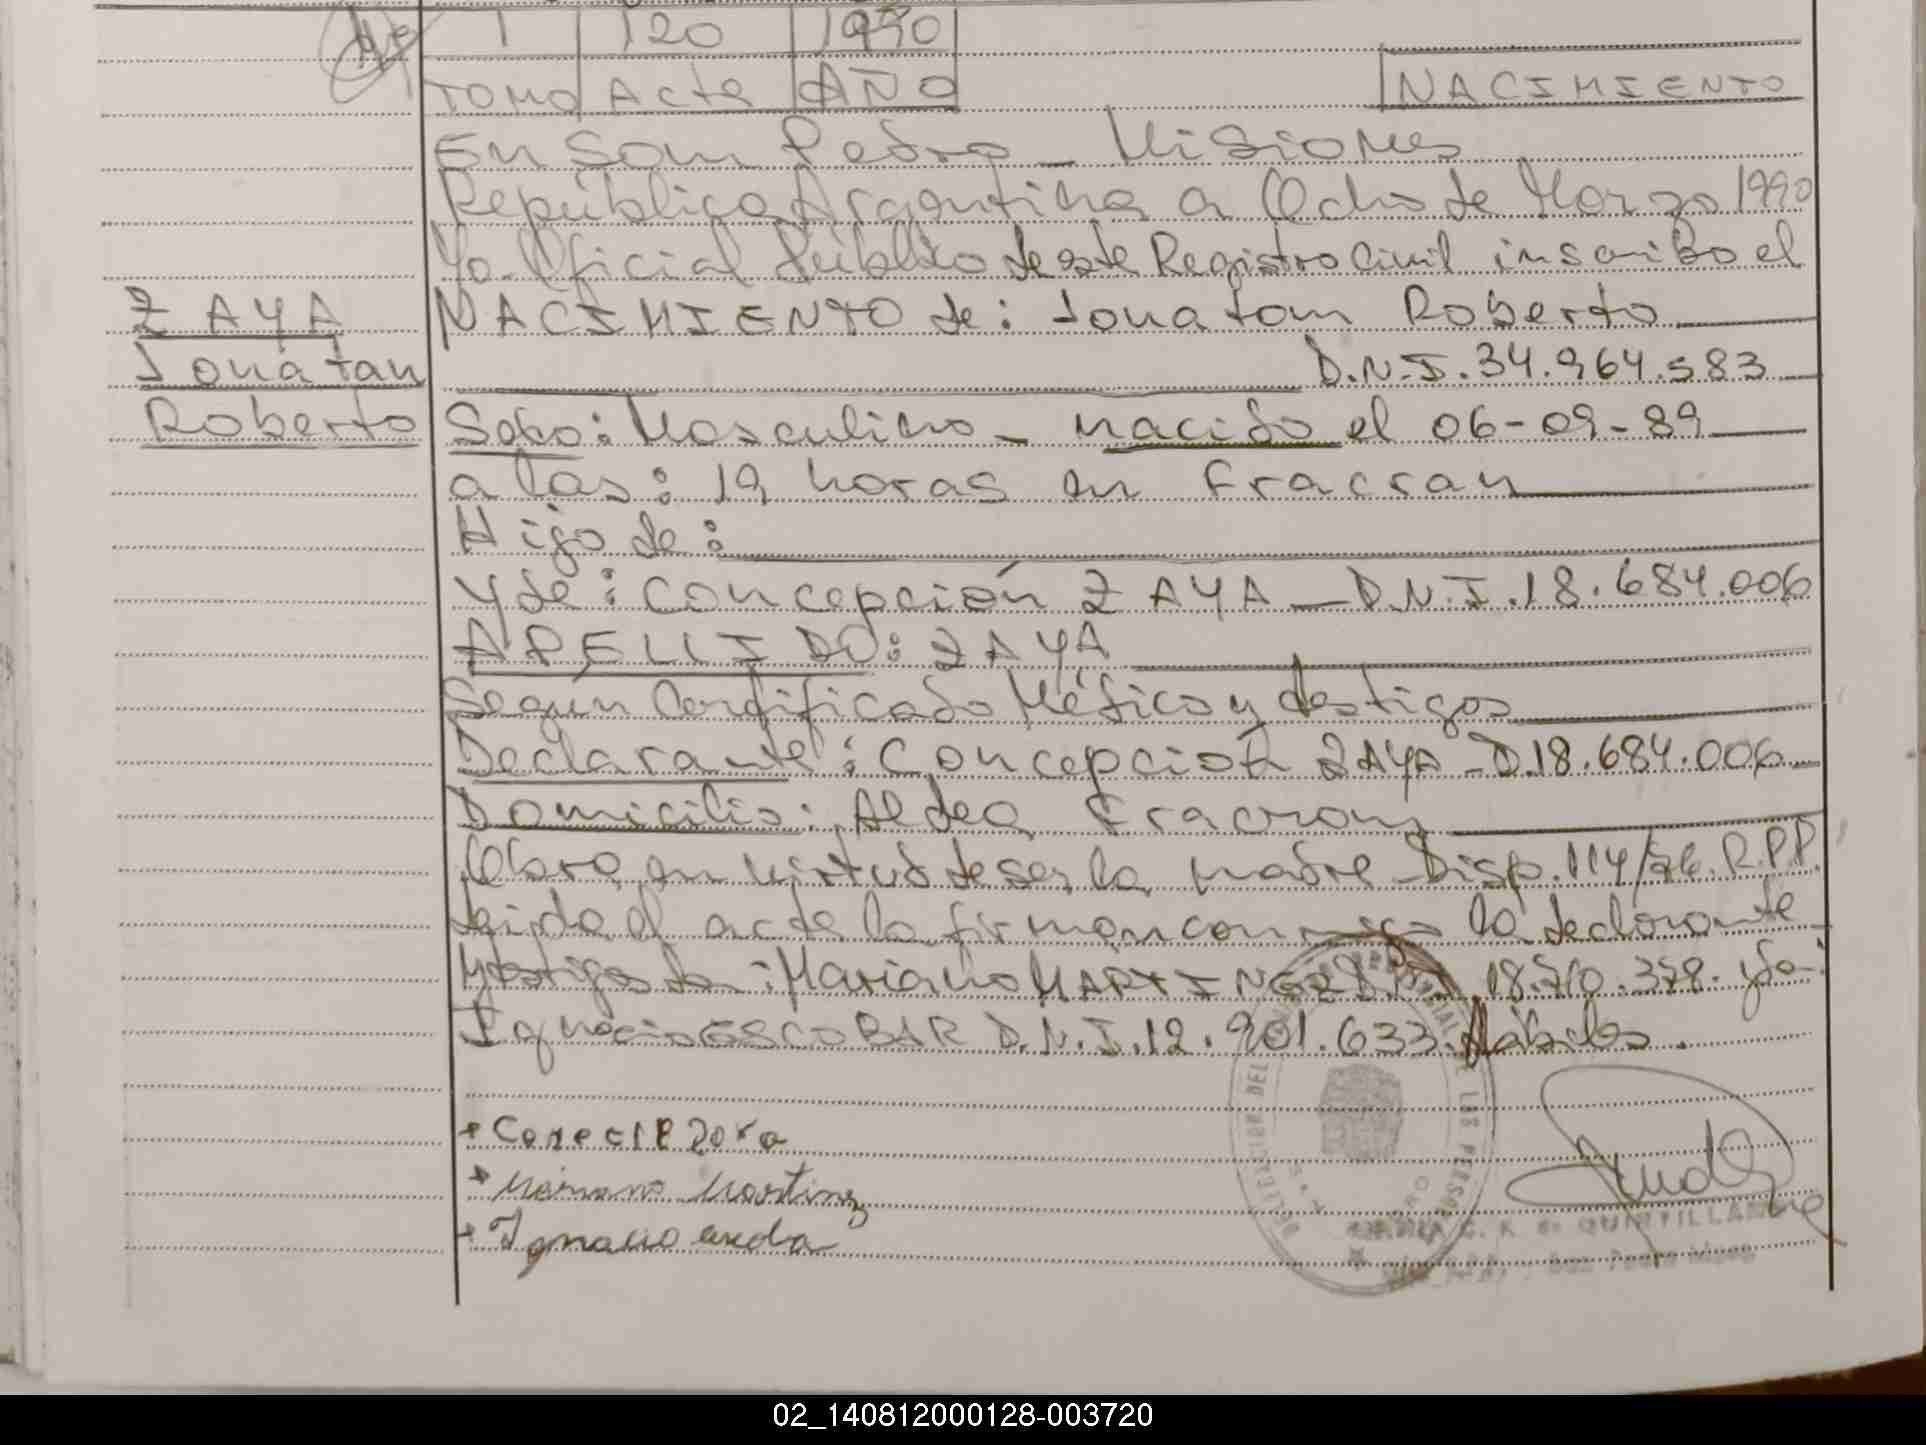 1 120 1990
TOMO Acta AÑO
NACIMIENTO
En San Pedro - Misiones
República Argentina a Ocho de Marzo 1990
Yo. Oficial Público de este Registro Civil inscribo el
ZAYA
NACIMIENTO de: Jonatan Roberto
Jonatan
D.N.I. 34.964.583
Roberto
Sexo: Masculino - nacido el 06-09-89
a las: 19 horas en Fracran
Hijo de:
Y de: Concepción ZAYA - D.N.I. 18.684.006
APELLIDO: ZAYA
Según Certificado Médico y testigos
Declarante: Concepcion ZAYA - D.18.684.006
Domicilio: Aldea Fracran
Obra en virtud de ser la madre - Disp. 114/76. R.P.P.
Leída el acta la firman conmigo la declarante
y testigos Mariano MARTINEZ 18.710.378. y
Ignacio ESCOBAR D.N.I. 12.901.633. Hábiles.
Mariano Martinez
Ignacio
DELEGACION DEL
DE LAS PERSONAS
QUINTILLAN